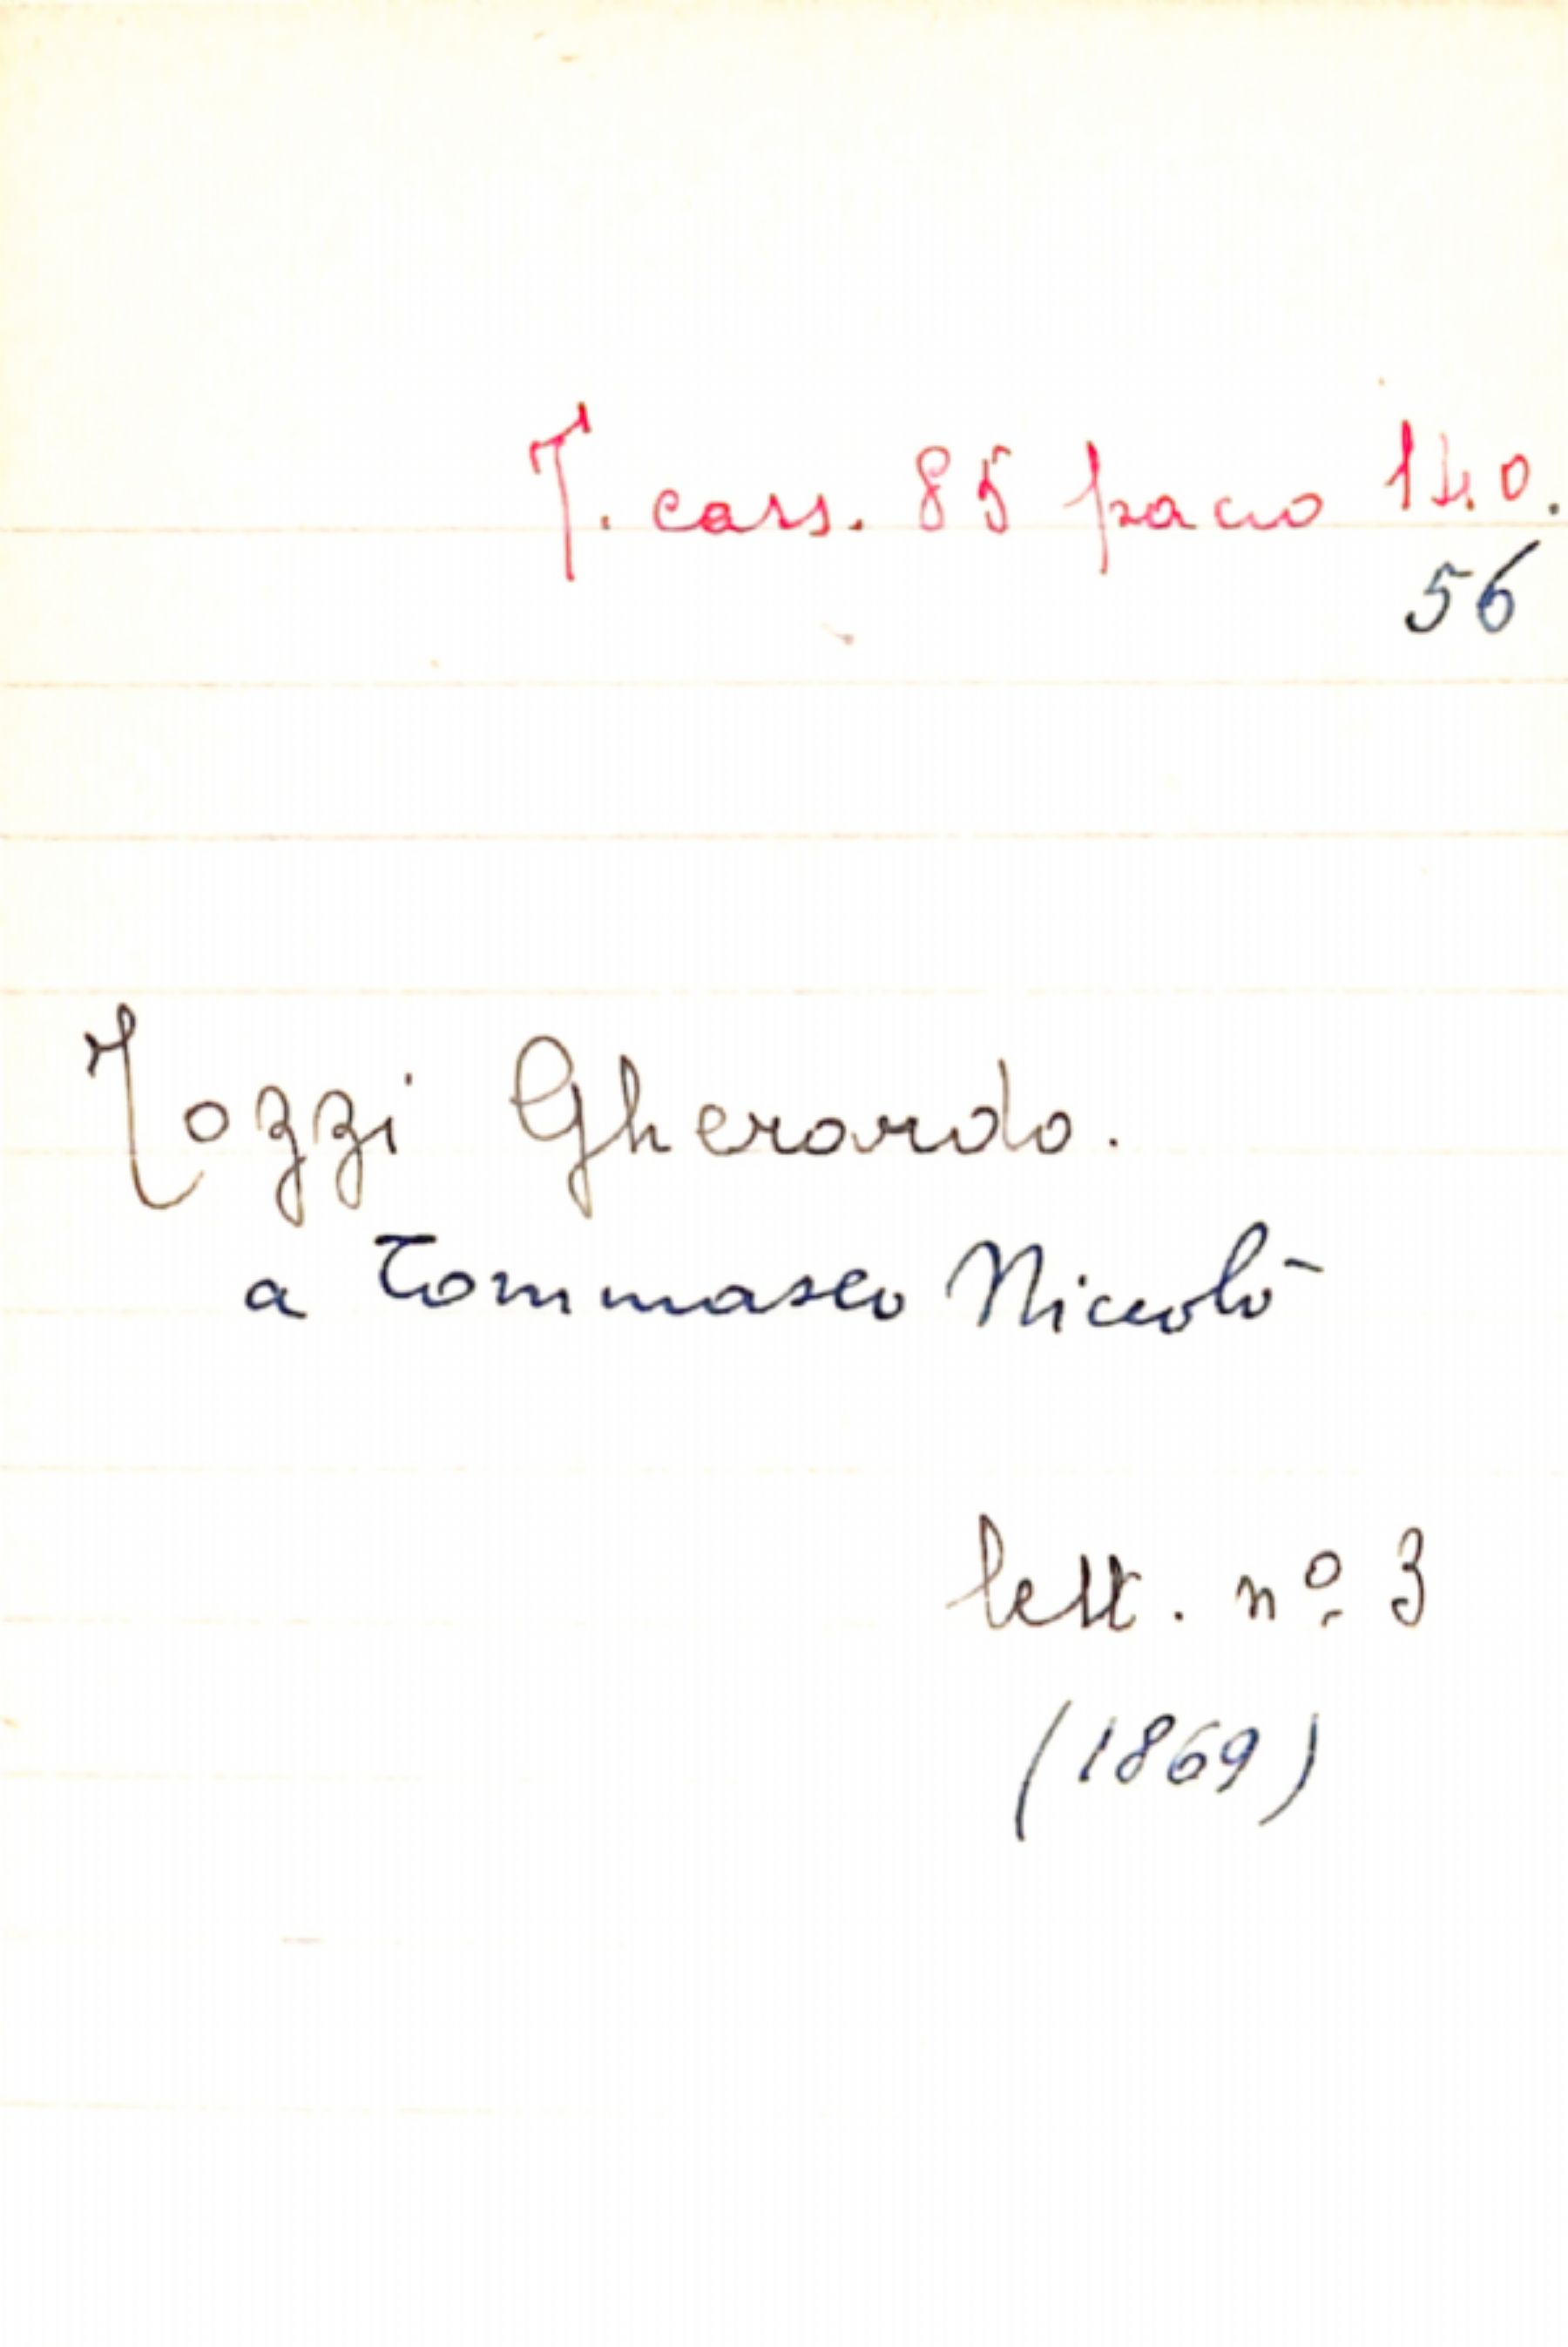 T. cass. 85 pacco 14.0.
56
Tozzi Gherardo.
a Tommaseo Niccolò
lett. nº 3
(1869)